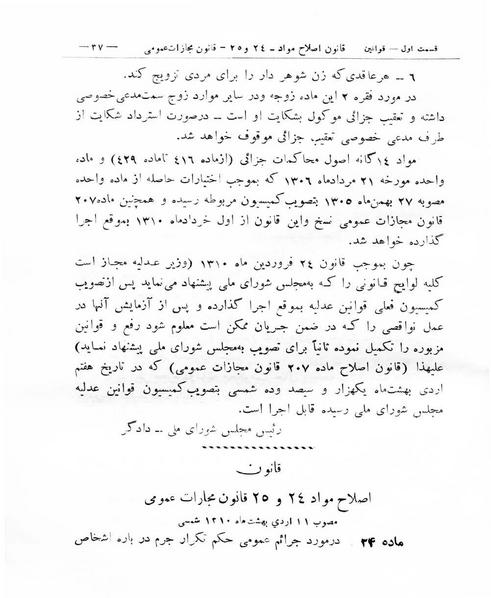 قسمت اول – قوانین    قانون اصلاح مواد – ۲۴ و ۲۵ – قانون مجازات عمومی    — ۳۷ —
۶ – هر عاقدی که زن شوهر دار را برای مردی تزویج کند.
در مورد فقره ۲ این ماده زوجه ودر سایر موارد زوج سمت مدعی خصوصی
داشته و تعقیب جزائی موکول بشکایت او است – درصورت استرداد شکایت از
طرف مدعی خصوصی تعقیب جزائی موقوف خواهد شد.
مواد ۱۴ گانه اصول محاکمات جزائی (از ماده ۴۱۶ تا ماده ۴۲۹) و ماده
واحده مورخه ۲۱ مردادماه ۱۳۰۶ که بموجب اختیارات حاصله از ماده واحده
مصوبه ۲۷ بهمن ماه ۱۳۰۵ بتصویب کمیسیون مربوطه رسیده و همچنین ماده ۲۰۷
قانون مجازات عمومی نسخ واین قانون از اول خردادماه ۱۳۱۰ بموقع اجرا
گذارده خواهد شد.
چون بموجب قانون ۲۴ فروردین ماه ۱۳۱۰ (وزیر عدلیه مجاز است
کلیه لوایح قانونی را که به مجلس شورای ملی پیشنهاد می نماید پس از تصویب
کمیسیون فعلی قوانین عدلیه بموقع اجرا گذارده و پس از آزمایش آنها در
عمل نواقصی را که در ضمن جریان ممکن است معلوم شود رفع و قوانین
مزبوره را تکمیل نموده ثانیاً برای تصویب به مجلس شورای ملی پیشنهاد نماید)
علیهذا (قانون اصلاح ماده ۲۰۷ قانون مجازات عمومی) که در تاریخ هفتم
اردی بهشت ماه یکهزار و سیصد وده شمسی بتصویب کمیسیون قوانین عدلیه
مجلس شورای ملی رسیده قابل اجرا است.
رئیس مجلس شورای ملی – دادگر
قانون
اصلاح مواد ۲۴ و ۲۵ قانون مجازات عمومی
مصوب ۱۱ اردی بهشت ماه ۱۳۱۰ شمسی
ماده ۲۴ درمورد جرائم عمومی حکم تکرار جرم در باره اشخاص